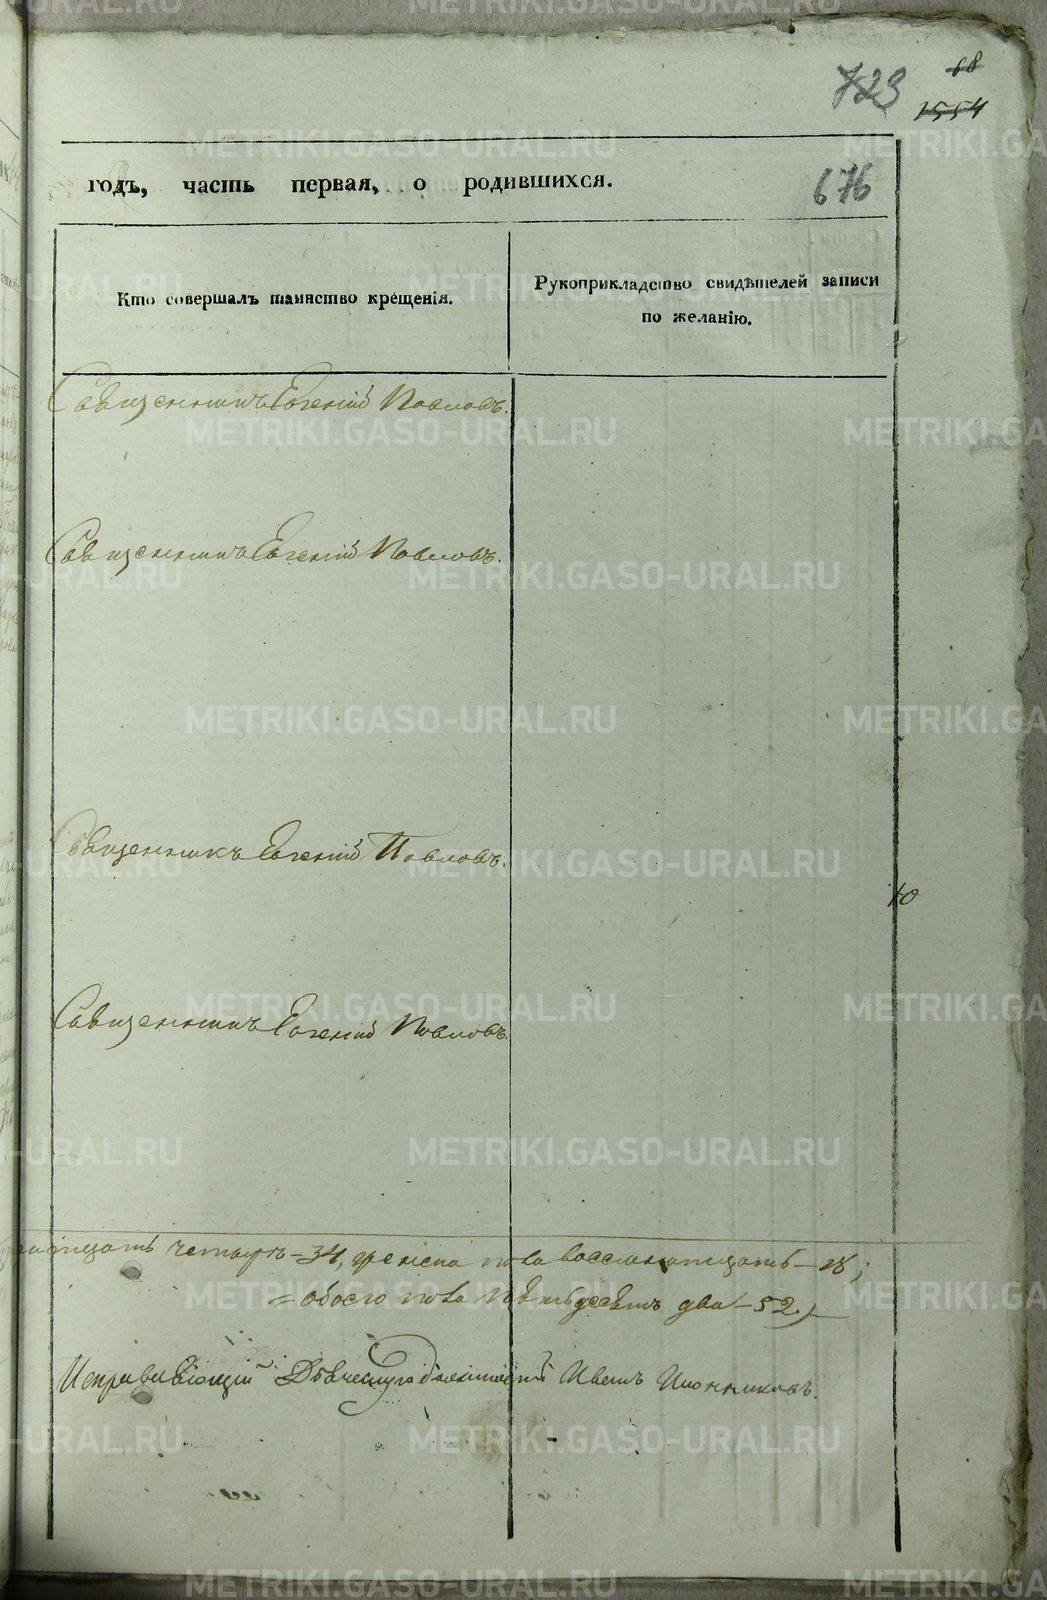 68
723
1554
годъ, часть первая, о родившихся.
676
Кто совершалъ таинство крещенія.
Рукоприкладство свидѣтелей записи
по желанію.
Священникъ Евгеній Павловъ.
Священникъ Евгеній Павловъ.
Священникъ Евгеній Павловъ.
10
Священникъ Евгеній Павловъ.
четыре – 34, женска пола восемнатцать – 18;
= обоего пола пѣтьдесѣтъ два – 52.)
Исправляющій Дьяческую должность Иванъ
METRIKI.GASO-URAL.RU